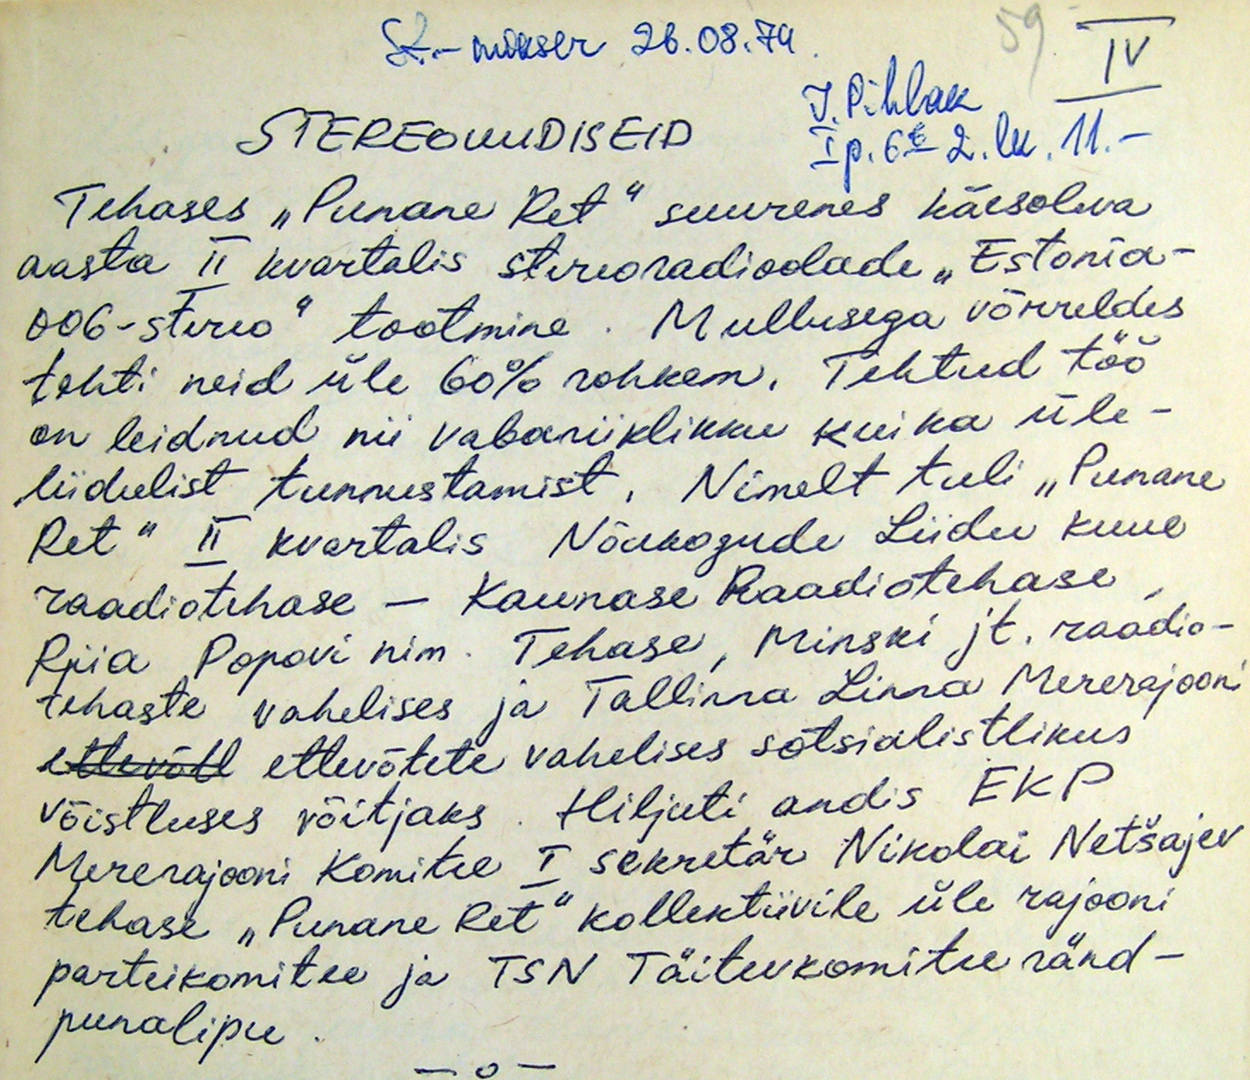 St.-mikser 26.08.79.
59
IV
J. Pihlak
I p. 6st 2. lk. 11.-
STEREOUUDISEID
Tehases „Punane Ret“ suurenes käesoleva
aasta II kvartalis stereoradioolade „Estonia-
006-stereo“ tootmine. Mullusega võrreldes
tehti neid üle 60% rohkem. Tehtud töö
on leidnud nii vabariiklikku kui ka üle-
liidulist tunnustamist. Nimelt tuli „Punane
Ret“ II kvartalis Nõukogude Liidu kuue
raadiotehase — Kaunase Raadiotehase,
Riia Popovi nim. Tehase, Minski jt. raadio-
tehaste vahelises ja Tallinna Linna Mererajooni
ettevõtt ettevõtete vahelises sotsialistlikus
võistluses võitjaks. Hiljuti andis EKP
Mererajooni Komitee I sekretär Nikolai Netšajev
tehase „Punane Ret“ kollektiivile üle rajooni
parteikomitee ja TSN Täitevkomitee ränd-
punalipu.
— o —